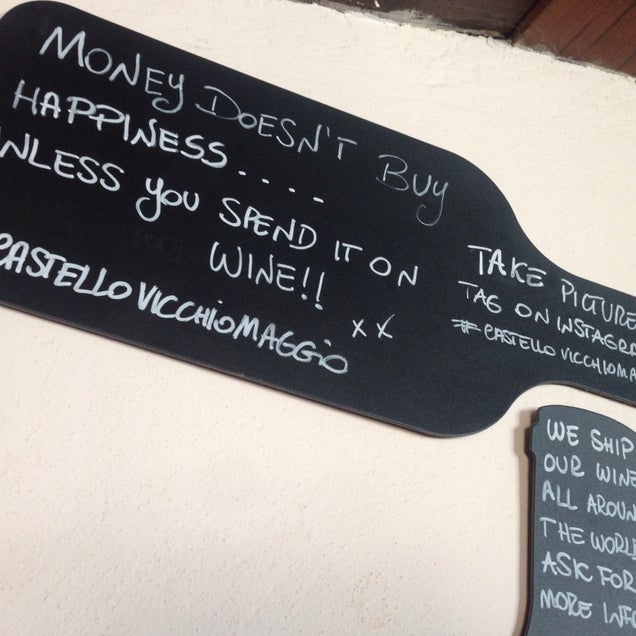 MONEY DOESN'T BUY
HAPPINESS....
UNLESS YOU SPEND IT ON
WINE!!
CASTELLO VICCHIOMAGGIO
XX
TAKE PICTURE
TAG ON INSTAGRA
#CASTELLOVICCHIOMA
WE SHIP
OUR WINE
ALL AROUN
THE WORLD
ASK FOR
MORE INFO